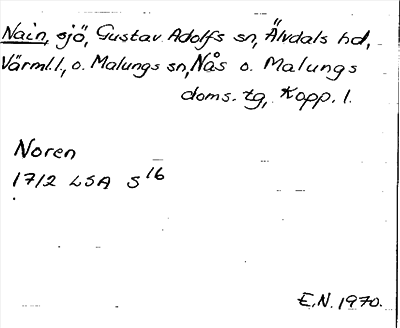 Nain, sjö, Gustav Adolfs sn, Älvdals hd,
Värml.l., o. Malungs sn, Nås o. Malungs
doms. tg, Kopp. l.
Noren
1712 LSA S 16
E.N. 1970.